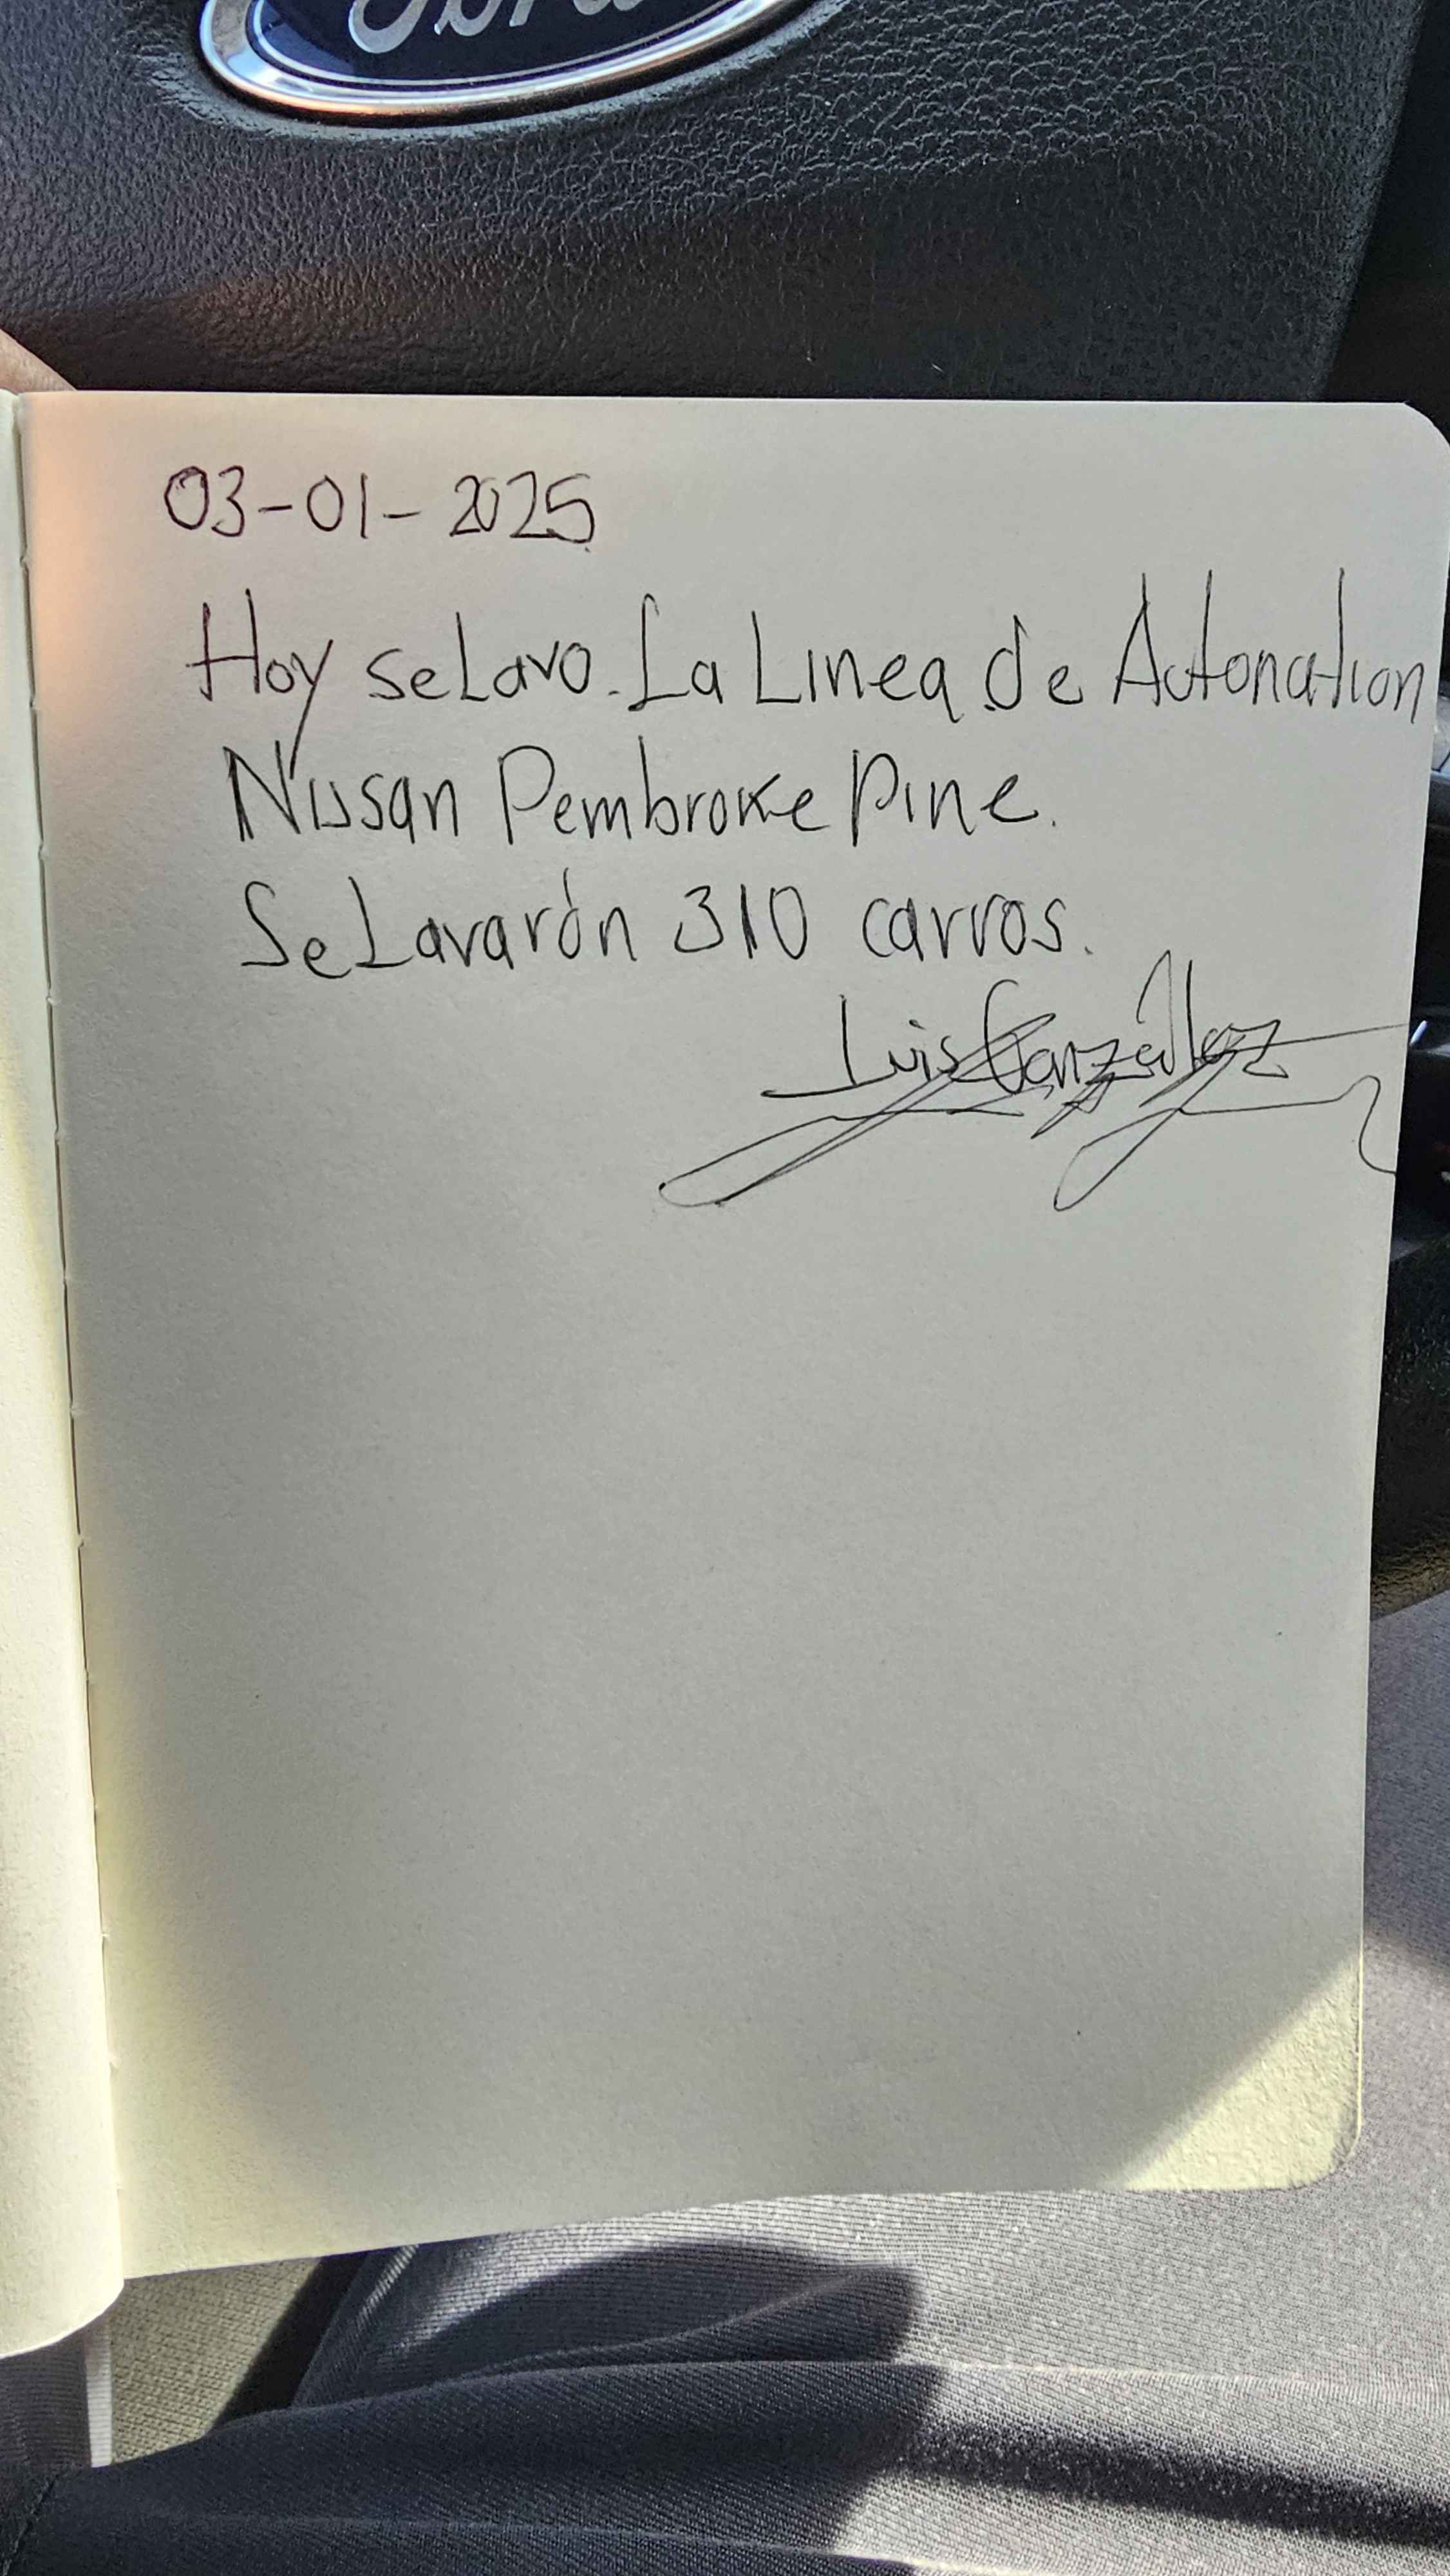 Ford
03-01-2025
Hoy se Lavo. La Linea de Autonation
Nissan Pembroke Pine.
Se Lavarón 310 carros.
Luis González